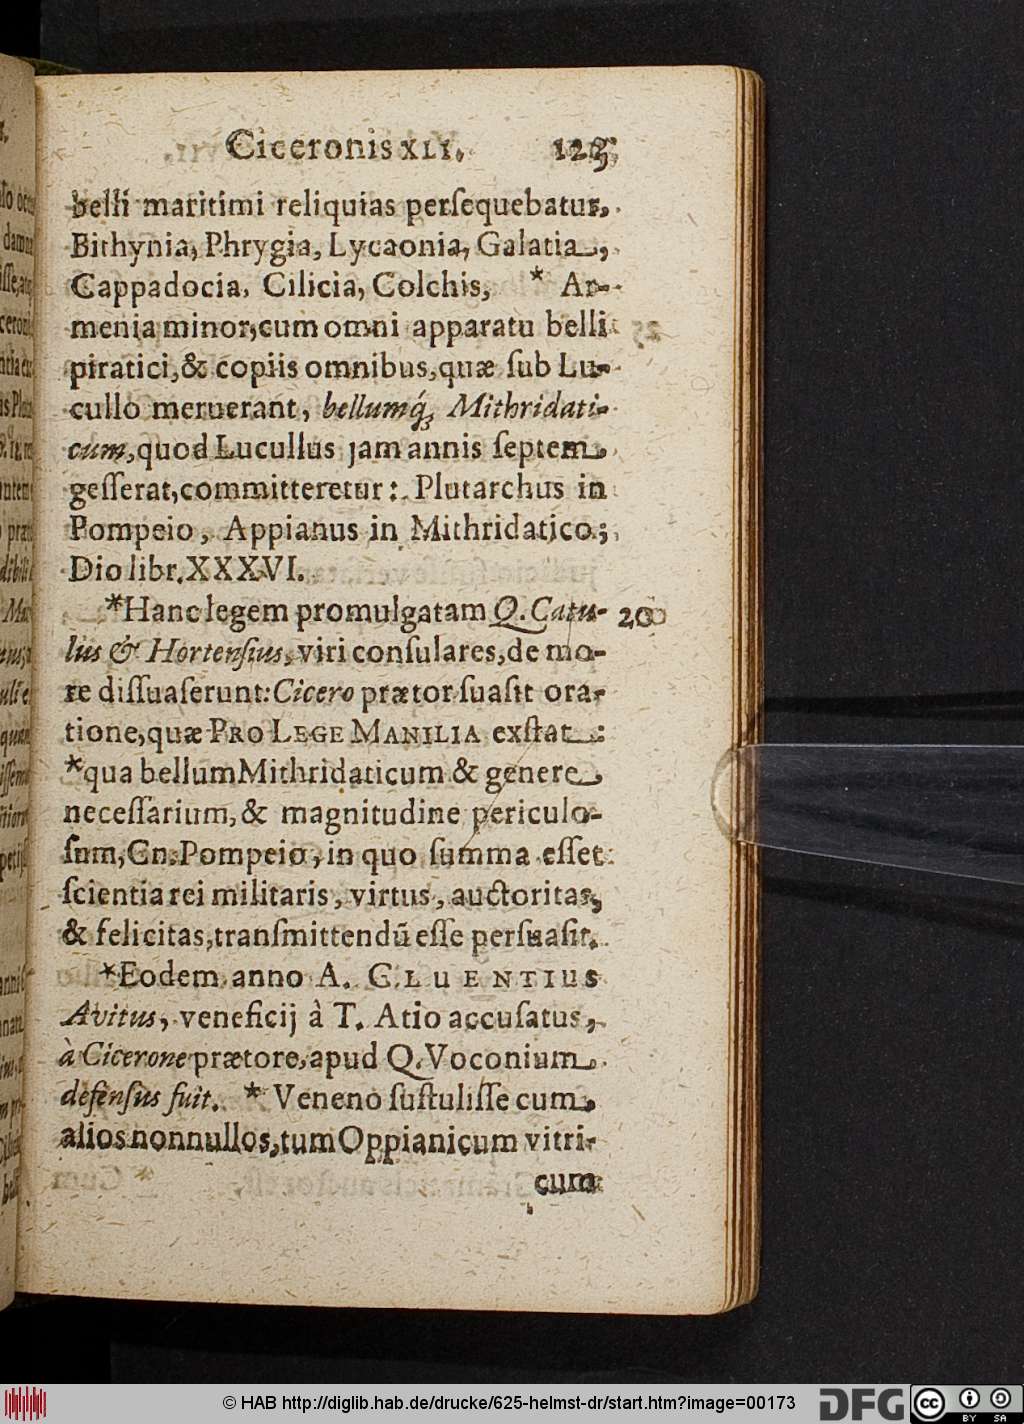 Ciceronis XLI. 125
belli maritimi reliquias perſequebatur,
Bithynia, Phrygia, Lycaonia, Galatia,
Cappadocia, Cilicia, Colchis, * Ar-
menia minor, cum omni apparatu belli
piratici, & copiis omnibus, quæ ſub Lu-
cullo meruerant, bellumq́; Mithridati-
cum, quod Lucullus jam annis ſeptem
geſſerat, committeretur: Plutarchus in
Pompeio, Appianus in Mithridatico;
Dio libr. XXXVI.
*Hanc legem promulgatam Q. Catu- 20
lus & Hortenſius, viri conſulares, de mo-
re diſſuaſerunt: Cicero prætor ſuaſit ora-
tione, quæ PRO LEGE MANILIA exſtat:
*qua bellum Mithridaticum & genere
neceſſarium, & magnitudine periculo-
ſum, Cn. Pompeio, in quo ſumma eſſet
ſcientia rei militaris, virtus, auctoritas,
& felicitas, tranſmittendū eſſe perſuaſit.
*Eodem anno A. CLUENTIUS
Avitus, veneficij à T. Atio accuſatus,
à Cicerone prætore, apud Q. Voconium
defenſus fuit. * Veneno ſuſtuliſſe cum
alios nonnullos, tum Oppianicum vitri-
cum
© HAB http://diglib.hab.de/drucke/625-helmst-dr/start.htm?image=00173
DFG
cc
BY SA